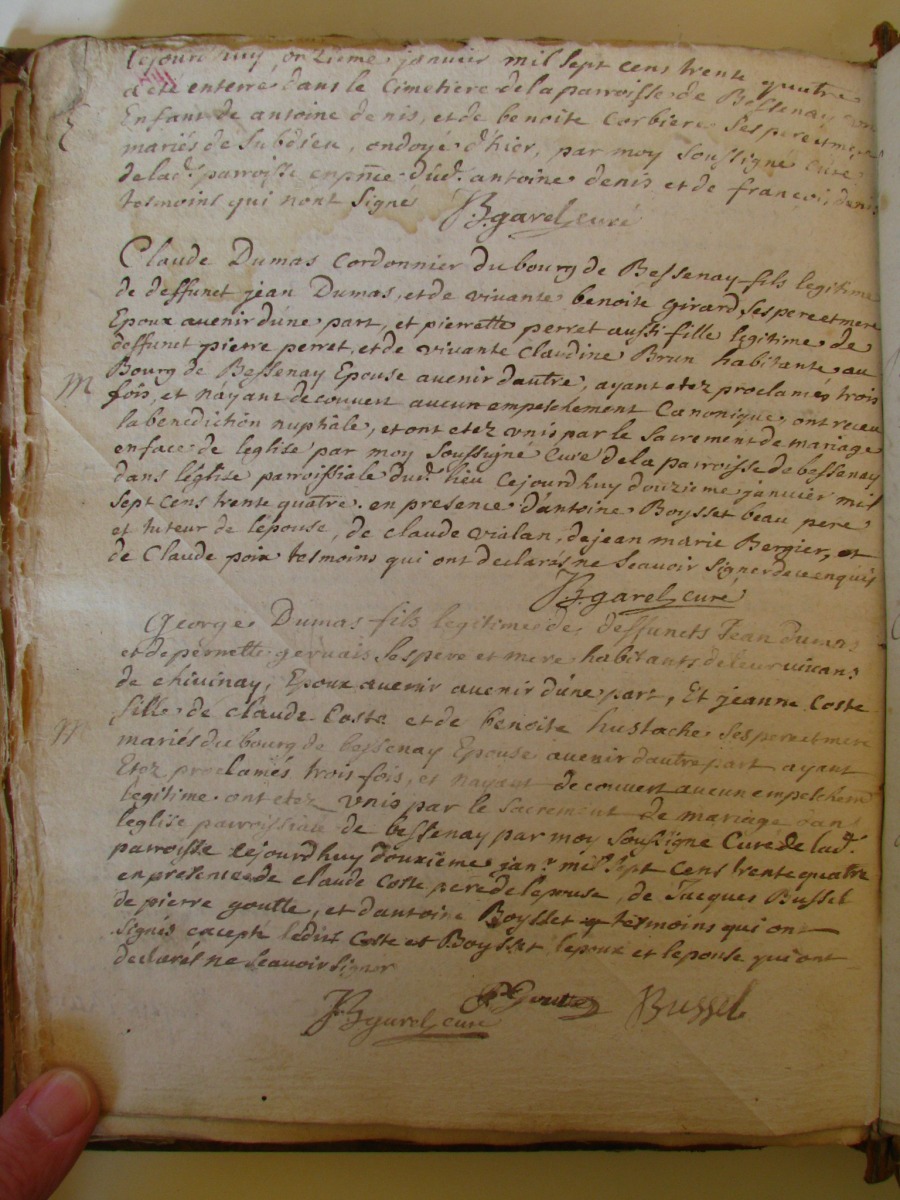 Cejourdhuy, onzieme janvier mil sept cens trente quatre
a eté enterré dans le Cimetiere de la parroisse de Bessenay
Enfant de antoine denis, et de benoite Corbiere ses pere et mere
mariés de Subdieu, ondoyé d'hier, par moy soussigné Curé
de lad.e parroisse en pñce dud. antoine denis et de francois denis
tesmoins qui nont signé
JBgarel curé
Claude Dumas Cordonnier du bourg de Bessenay fils legitime
de deffunct jean Dumas, et de vivante benoite girard ses pere et mere
Epoux avenir d'une part, et pierrette perret aussi fille legitime de
deffunct pierre perret, et de vivante Claudine Brun habitante au
M
Bourg de Bessenay Epouse avenir dautre, ayant etez proclamés trois
fois, et n'ayant decouvert aucun empeschement Canonique, ont receu
la benediction nuptiale, et ont etez vnis par le Sacrement de mariage
en face de leglise par moy Soussigne Curé de la parroisse de bessenay
dans l'église parroissiale dud. lieu Cejourdhuy douzieme janvier mil
sept cens trente quatre. en presence d'antoine Boysset beau pere
et tuteur de lepouse, de claude vialan, de jean marie Bergier, et
de Claude poix tesmoins qui ont declarés ne scauoir signer de ce enquis
JBgarel curé
George Dumas fils legitime de deffuncts Jean dumas
et de pernette gervais ses pere et mere habitants de leur vivans
de chivinay, Epoux avenir avenir d'une part, Et jeanne Coste
fille de claude Coste et de benoite hustache ses pere et mere
M
mariés du bourg de bessenay Epouse avenir dautre part ayant
Etez proclamés trois fois, et nayant decouvert aucun empeschem
legitime. ont etez vnis par le Sacrement de mariage dans
leglise parroissiale de bessenay par moy Soussigne Curé de lad.
parroisse cejourdhuy douzieme janr. mil sept cens trente quatre
en presence de claude Coste pere de lepouse, de Jacques Bussel
de pierre goutte, et dantoine Boysset tesmoins qui ont
signés excepté ledit Coste et Boysset, lepoux et lepouse qui ont
declarés ne scauoir signer
JBgarel curé
P Goutte
Bussel